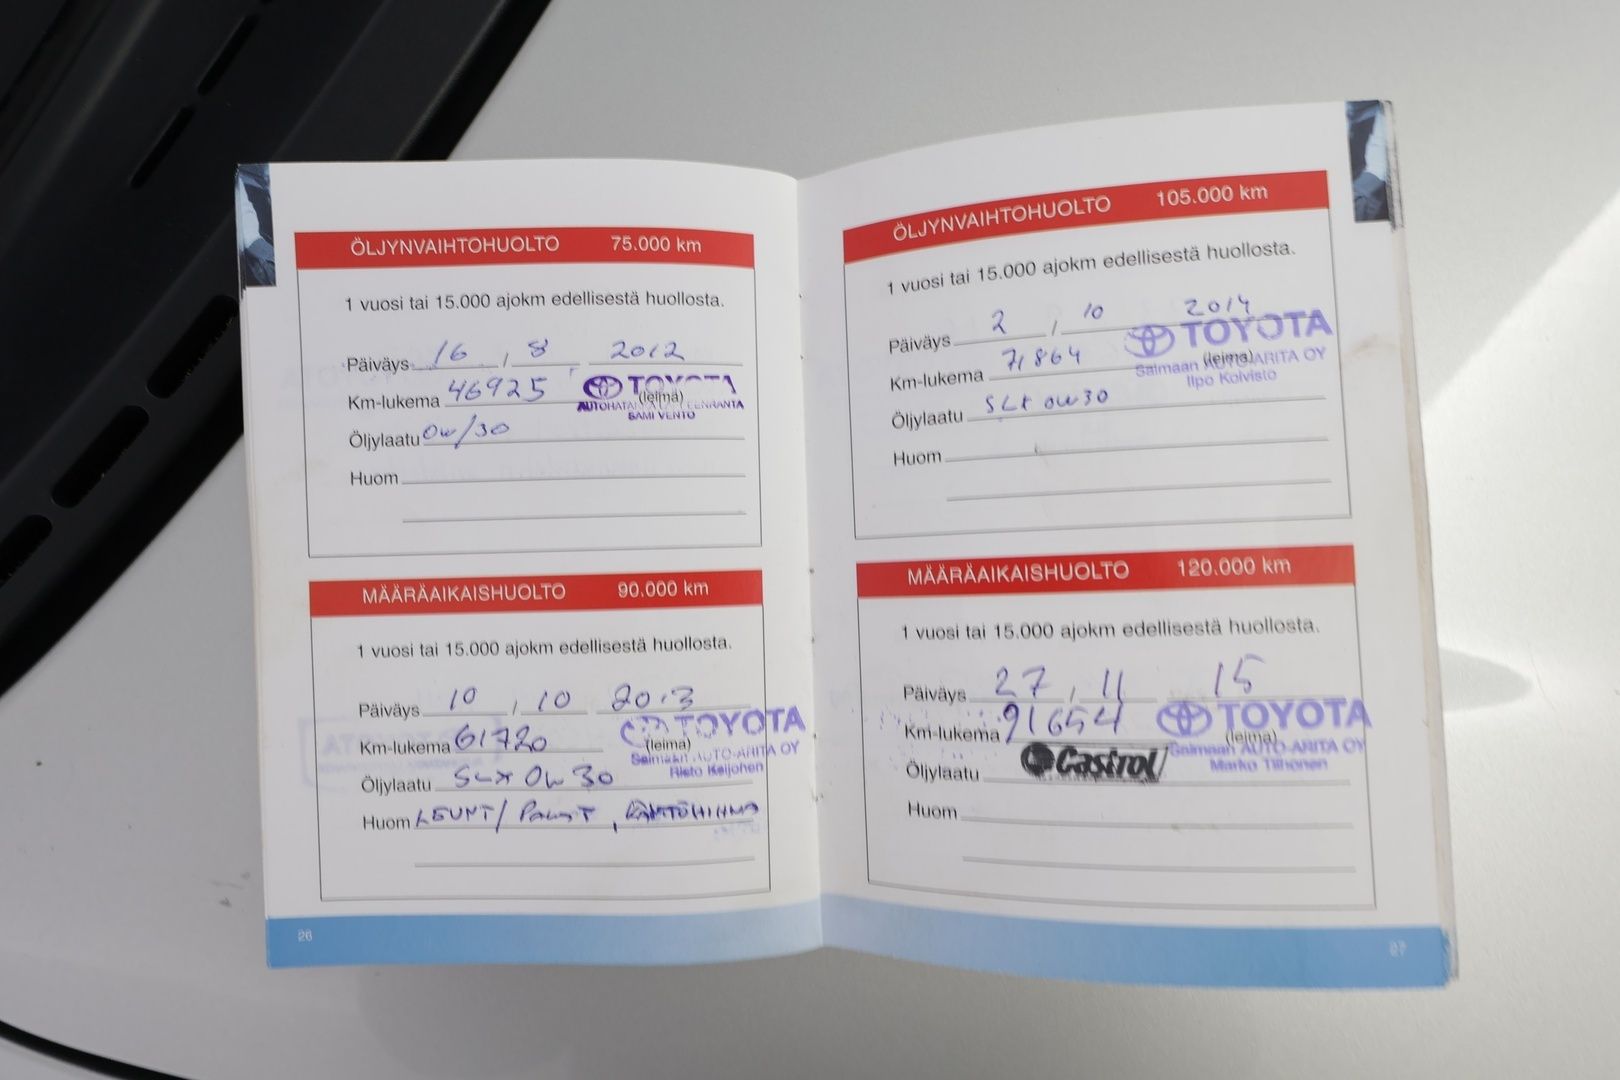 ÖLJYNVAIHTOHUOLTO 75.000 km
1 vuosi tai 15.000 ajokm edellisestä huollosta.
Päiväys 16 , 8 2012
Km-lukema 46925 TOYOTA
(leima)
SAMI VENTO
Öljylaatu 0w/30
Huom
MÄÄRÄAIKAISHUOLTO 90.000 km
1 vuosi tai 15.000 ajokm edellisestä huollosta.
Päiväys 10 , 10 2013
TOYOTA
Km-lukema 61720 (leima)
Saimaan AUTO-ARITA OY
Risto Keijonen
Öljylaatu SLX 0w30
Huom
26
ÖLJYNVAIHTOHUOLTO 105.000 km
1 vuosi tai 15.000 ajokm edellisestä huollosta.
Päiväys 2 , 10 2014
TOYOTA
Km-lukema 71864 (leima)
Saimaan AUTO-ARITA OY
Ilpo Koivisto
Öljylaatu SLX 0w30
Huom
MÄÄRÄAIKAISHUOLTO 120.000 km
1 vuosi tai 15.000 ajokm edellisestä huollosta.
Päiväys 27 , 11 15
TOYOTA
Km-lukema 91654 (leima)
Saimaan AUTO-ARITA OY
Marko Tiihonen
Öljylaatu Castrol
Huom
27